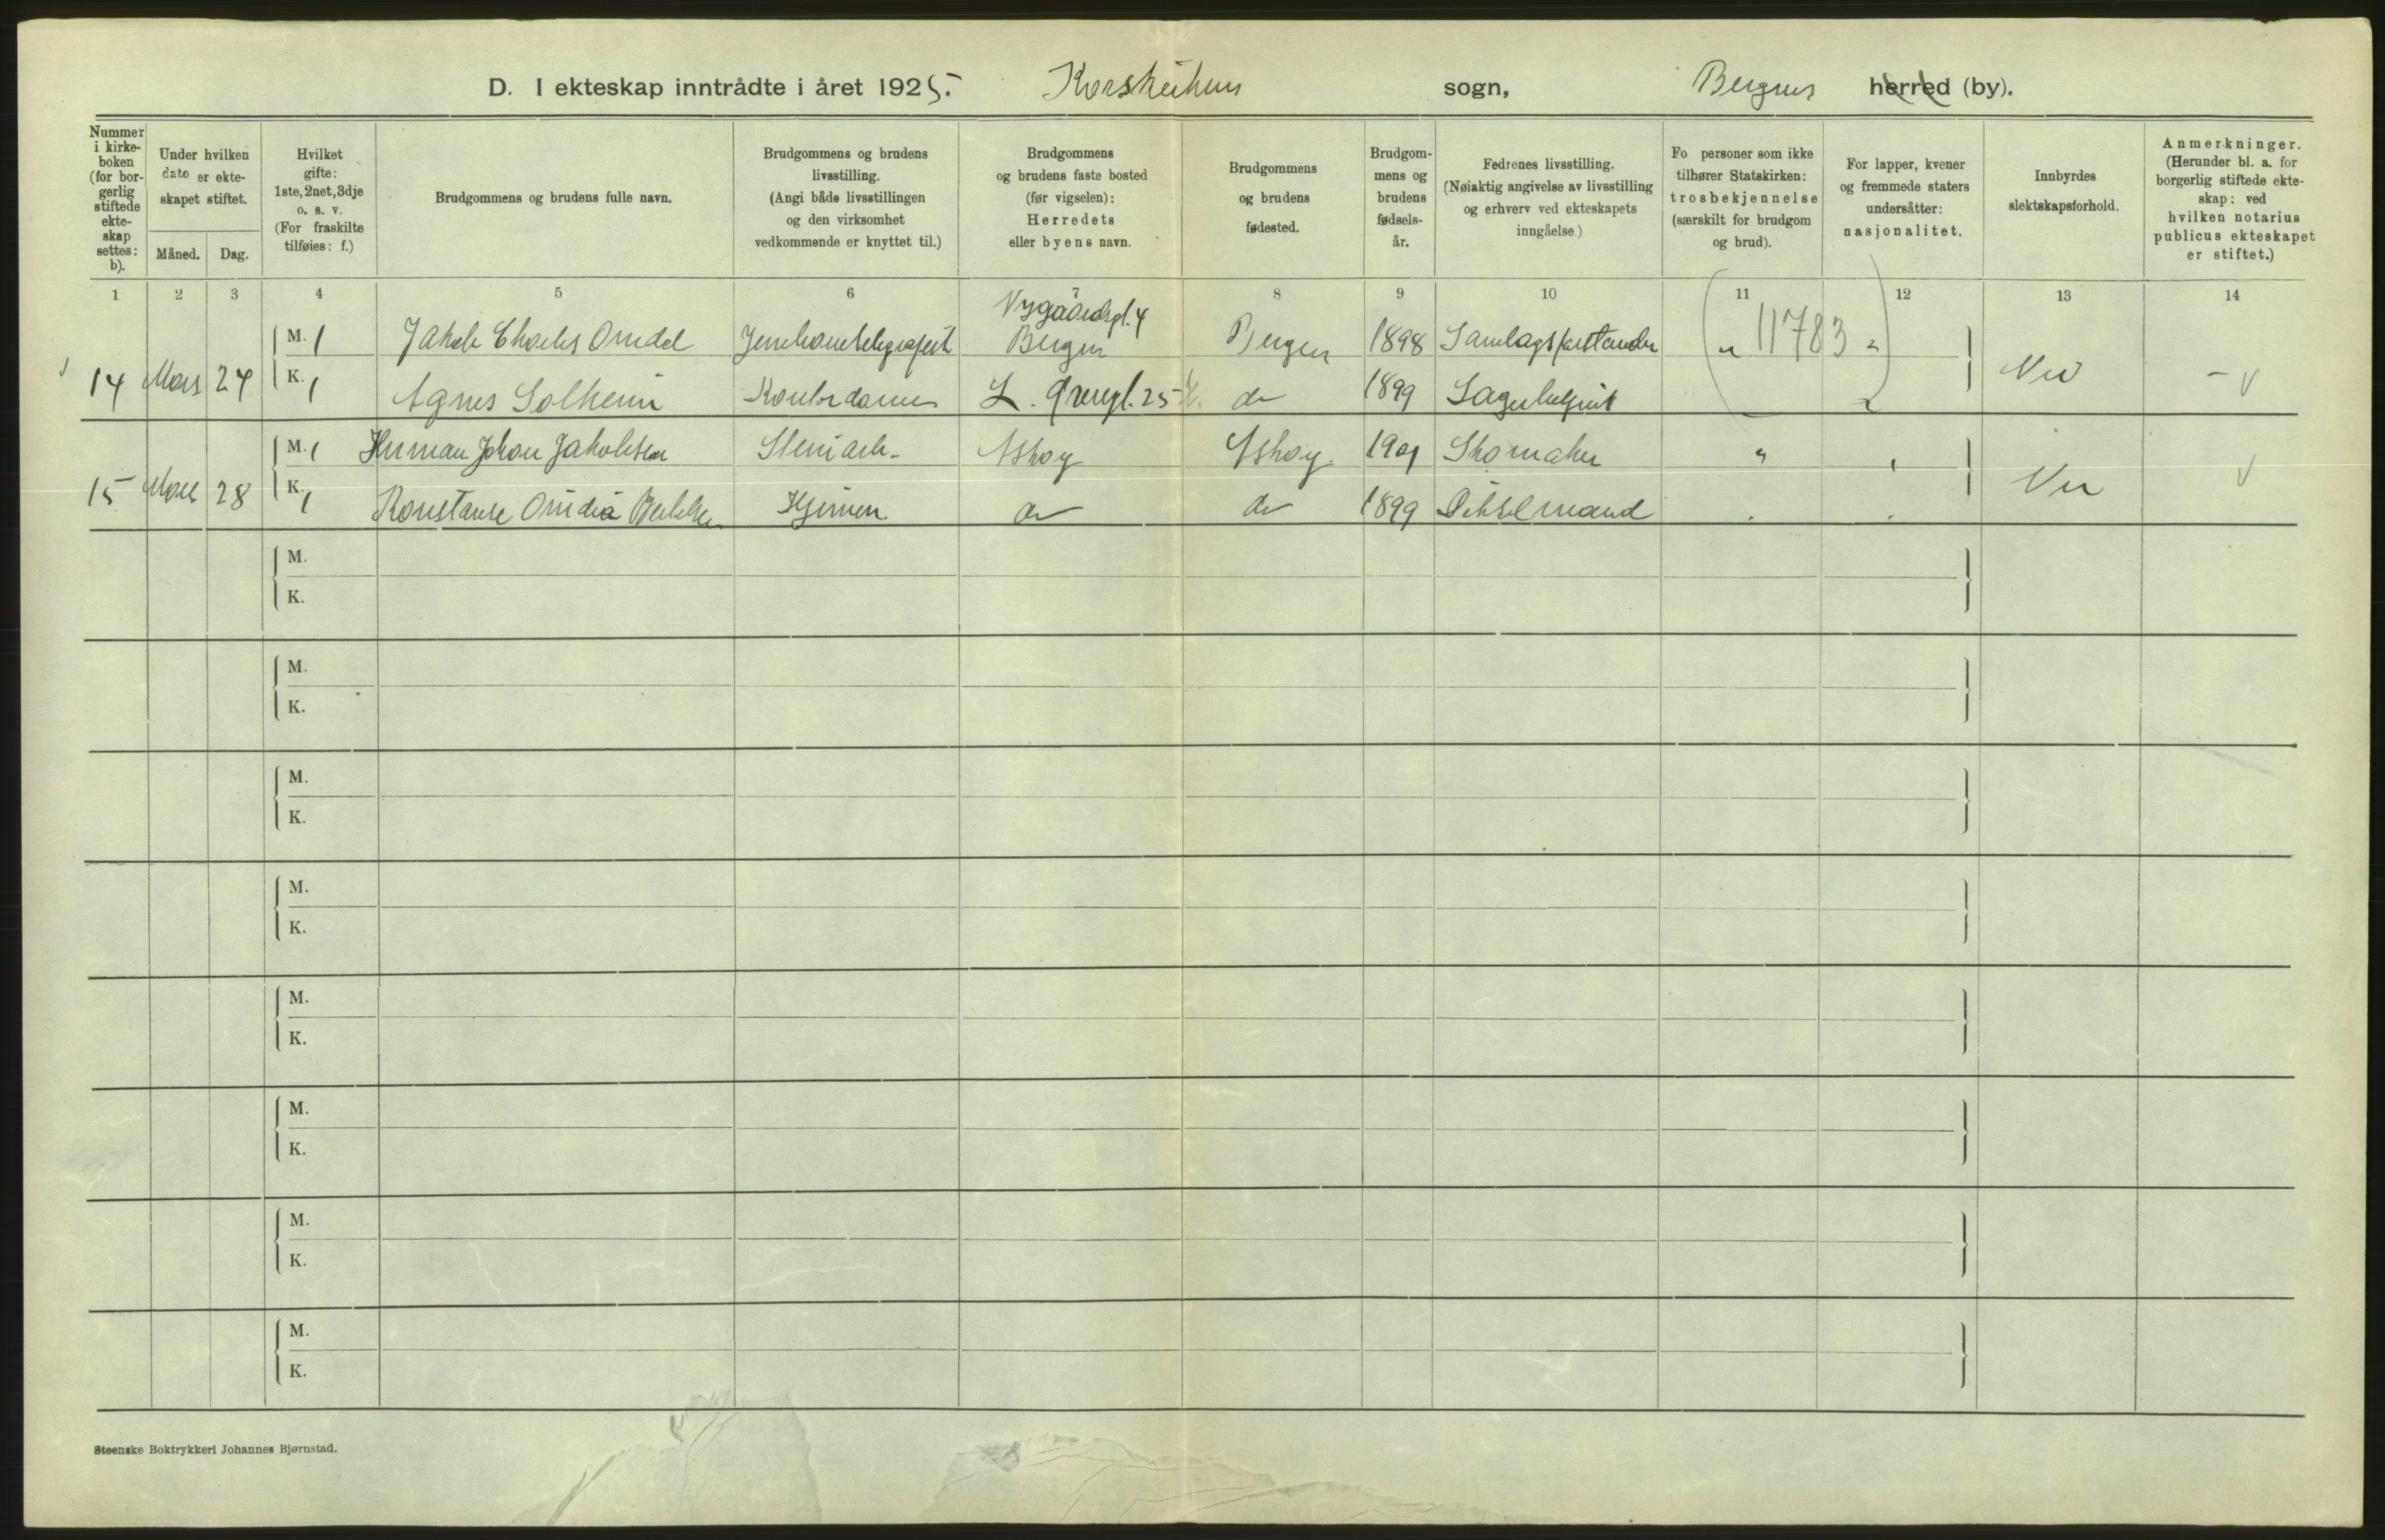 D. I ekteskap inntrådte i året 1925. Korskirkens sogn, Bergens herred (by).
Nummer i kirke-boken (for bor-gerlig stiftede ekte-skap settes: b).
Under hvilken dato er ekte-skapet stiftet.
Måned. Dag.
Hvilket gifte: 1ste, 2net, 3dje o. s. v. (For fraskilte tilføies: f.)
Brudgommens og brudens fulle navn.
Brudgommens og brudens livsstilling. (Angi både livsstillingen og den virksomhet vedkommende er knyttet til.)
Brudgommens og brudens faste bosted (før vigselen): Herredets eller byens navn.
Brudgommens og brudens fødested.
Brudgom-mens og brudens fødsels-år.
Fedrenes livsstilling. (Nøiaktig angivelse av livsstilling og erhverv ved ekteskapets inngåelse.)
Fo personer som ikke tilhører Statskirken: trosbekjennelse (særskilt for brudgom og brud).
For lapper, kvener og fremmede staters undersåtter: nasjonalitet.
Innbyrdes slektskapsforhold.
Anmerkninger. (Herunder bl. a. for borgerlig stiftede ekte-skap: ved hvilken notarius publicus ekteskapet er stiftet.)
1 2 3 4 5 6 7 8 9 10 11 12 13 14
Nygaardsgt. 4
14 Mars 24 M. 1 Jakob Charles Bergen Bergen 1898 Samlagsbestander " 11783 "
K. 1 Agnes Solheim Kontordame 25 do 1899 Nei - V
15 Mars 28 M. 1 Herman Johan Jakobsen Stenarb. Askøy Askøy 1901 Skomaker " V
K. 1 Konstanse Ovidia Hjemme do do 1899 Nei
M.
K.
M.
K.
M.
K.
M.
K.
M.
K.
M.
K.
M.
K.
M.
K.
Steenske Boktrykkeri Johannes Bjørnstad.